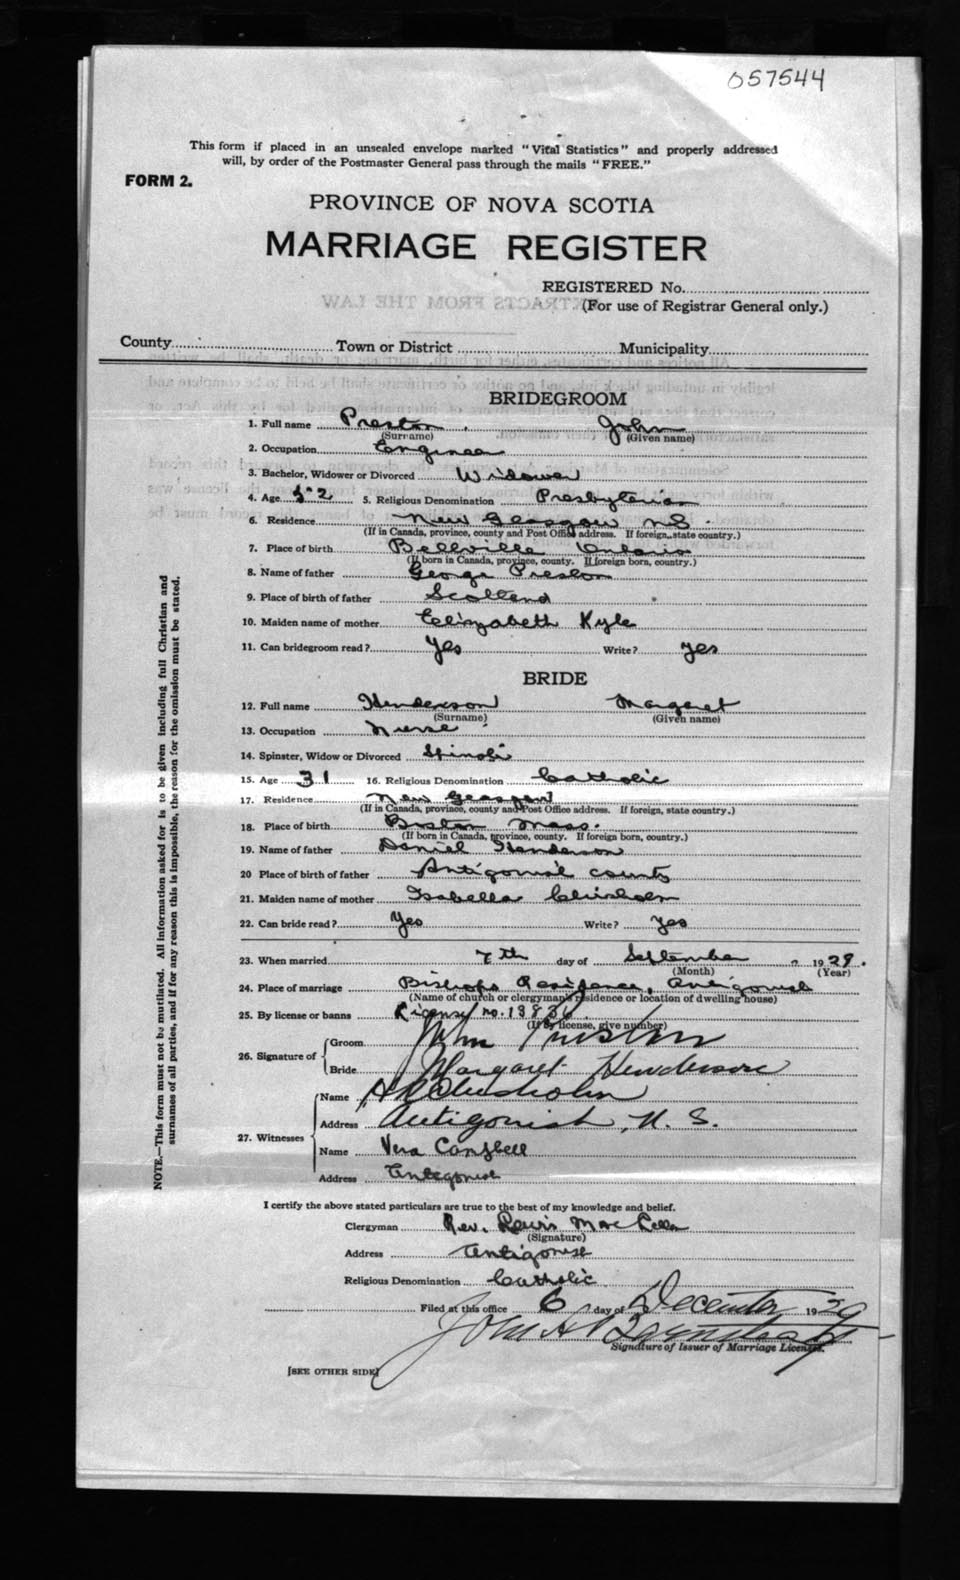 057544
This form if placed in an unsealed envelope marked "Vital Statistics" and properly addressed
will, by order of the Postmaster General pass through the mails "FREE."
FORM 2.
PROVINCE OF NOVA SCOTIA
MARRIAGE REGISTER
REGISTERED No.
(For use of Registrar General only.)
County Town or District Municipality
BRIDEGROOM
1. Full name Preston John
(Surname) (Given name)
2. Occupation Engineer
3. Bachelor, Widower or Divorced Widower
4. Age 52 5. Religious Denomination Presbyterian
6. Residence New Glasgow N.S.
(If in Canada, province, county and Post Office address. If foreign, state country.)
7. Place of birth Bellville Ontario
(If born in Canada, province, county. If foreign born, country.)
8. Name of father George Preston
9. Place of birth of father Scotland
10. Maiden name of mother Elizabeth Kyle
11. Can bridegroom read? Yes Write? yes
BRIDE
12. Full name Henderson Margaret
(Surname) (Given name)
13. Occupation Nurse
14. Spinster, Widow or Divorced
15. Age 31 16. Religious Denomination Catholic
17. Residence New Glasgow
(If in Canada, province, county and Post Office address. If foreign, state country.)
18. Place of birth Boston Mass.
(If born in Canada, province, county. If foreign born, country.)
19. Name of father Daniel Henderson
20 Place of birth of father Antigonish county
21. Maiden name of mother Isabella Chisholm
22. Can bride read? Yes Write? Yes
23. When married 7th day of September 1929.
(Month) (Year)
24. Place of marriage Bishops Residence, Antigonish
(Name of church or clergyman's residence or location of dwelling house)
25. By license or banns License no. 13836
(If by license, give number)
26. Signature of Groom John Preston
Bride Margaret Henderson
27. Witnesses
Name Chisholm
Address Antigonish, N. S.
Name Vera Campbell
Address Antigonish
I certify the above stated particulars are true to the best of my knowledge and belief.
Clergyman Rev. Lewis
(Signature)
Address Antigonish
Religious Denomination Catholic
Filed at this office 6 day of December 1929
John
Signature of Issuer of Marriage Licenses.
[SEE OTHER SIDE]
NOTE.—This form must not be mutilated. All information asked for is to be given including full Christian and
surnames of all parties, and if for any reason this is impossible, the reason for the omission must be stated.